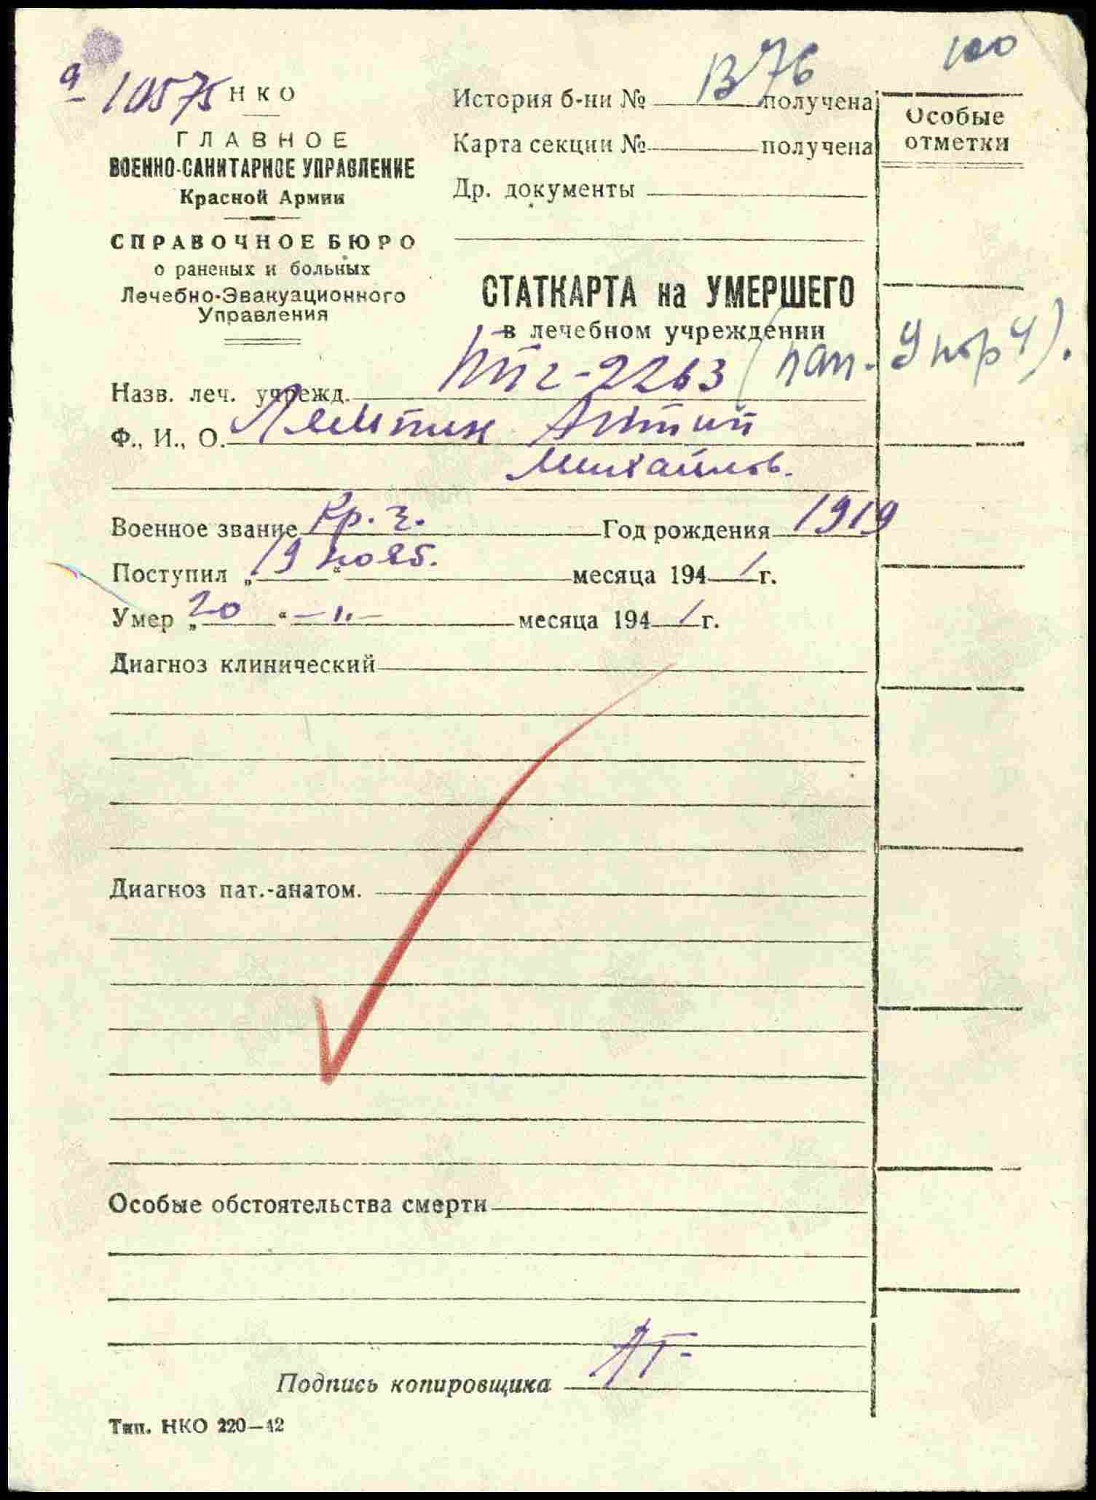 10575
НКО
ГЛАВНОЕ
ВОЕННО-САНИТАРНОЕ УПРАВЛЕНИЕ
Красной Армии
СПРАВОЧНОЕ БЮРО
о раненых и больных
Лечебно-Эвакуационного
Управления
100
История б-ни № 1376 получена
Карта секции № получена
Др. документы
Особые
отметки
СТАТКАРТА на УМЕРШЕГО
в лечебном учреждении
Назв. леч. учрежд. ППГ-2263
Ф., И., О.
Михайлов.
Военное звание Кр. Год рождения 1919
Поступил „19“ нояб. месяца 1941 г.
Умер „20“ –„– месяца 1941 г.
Диагноз клинический
Диагноз пат.-анатом.
Особые обстоятельства смерти
Подпись копировщика
Тип. НКО 220—42